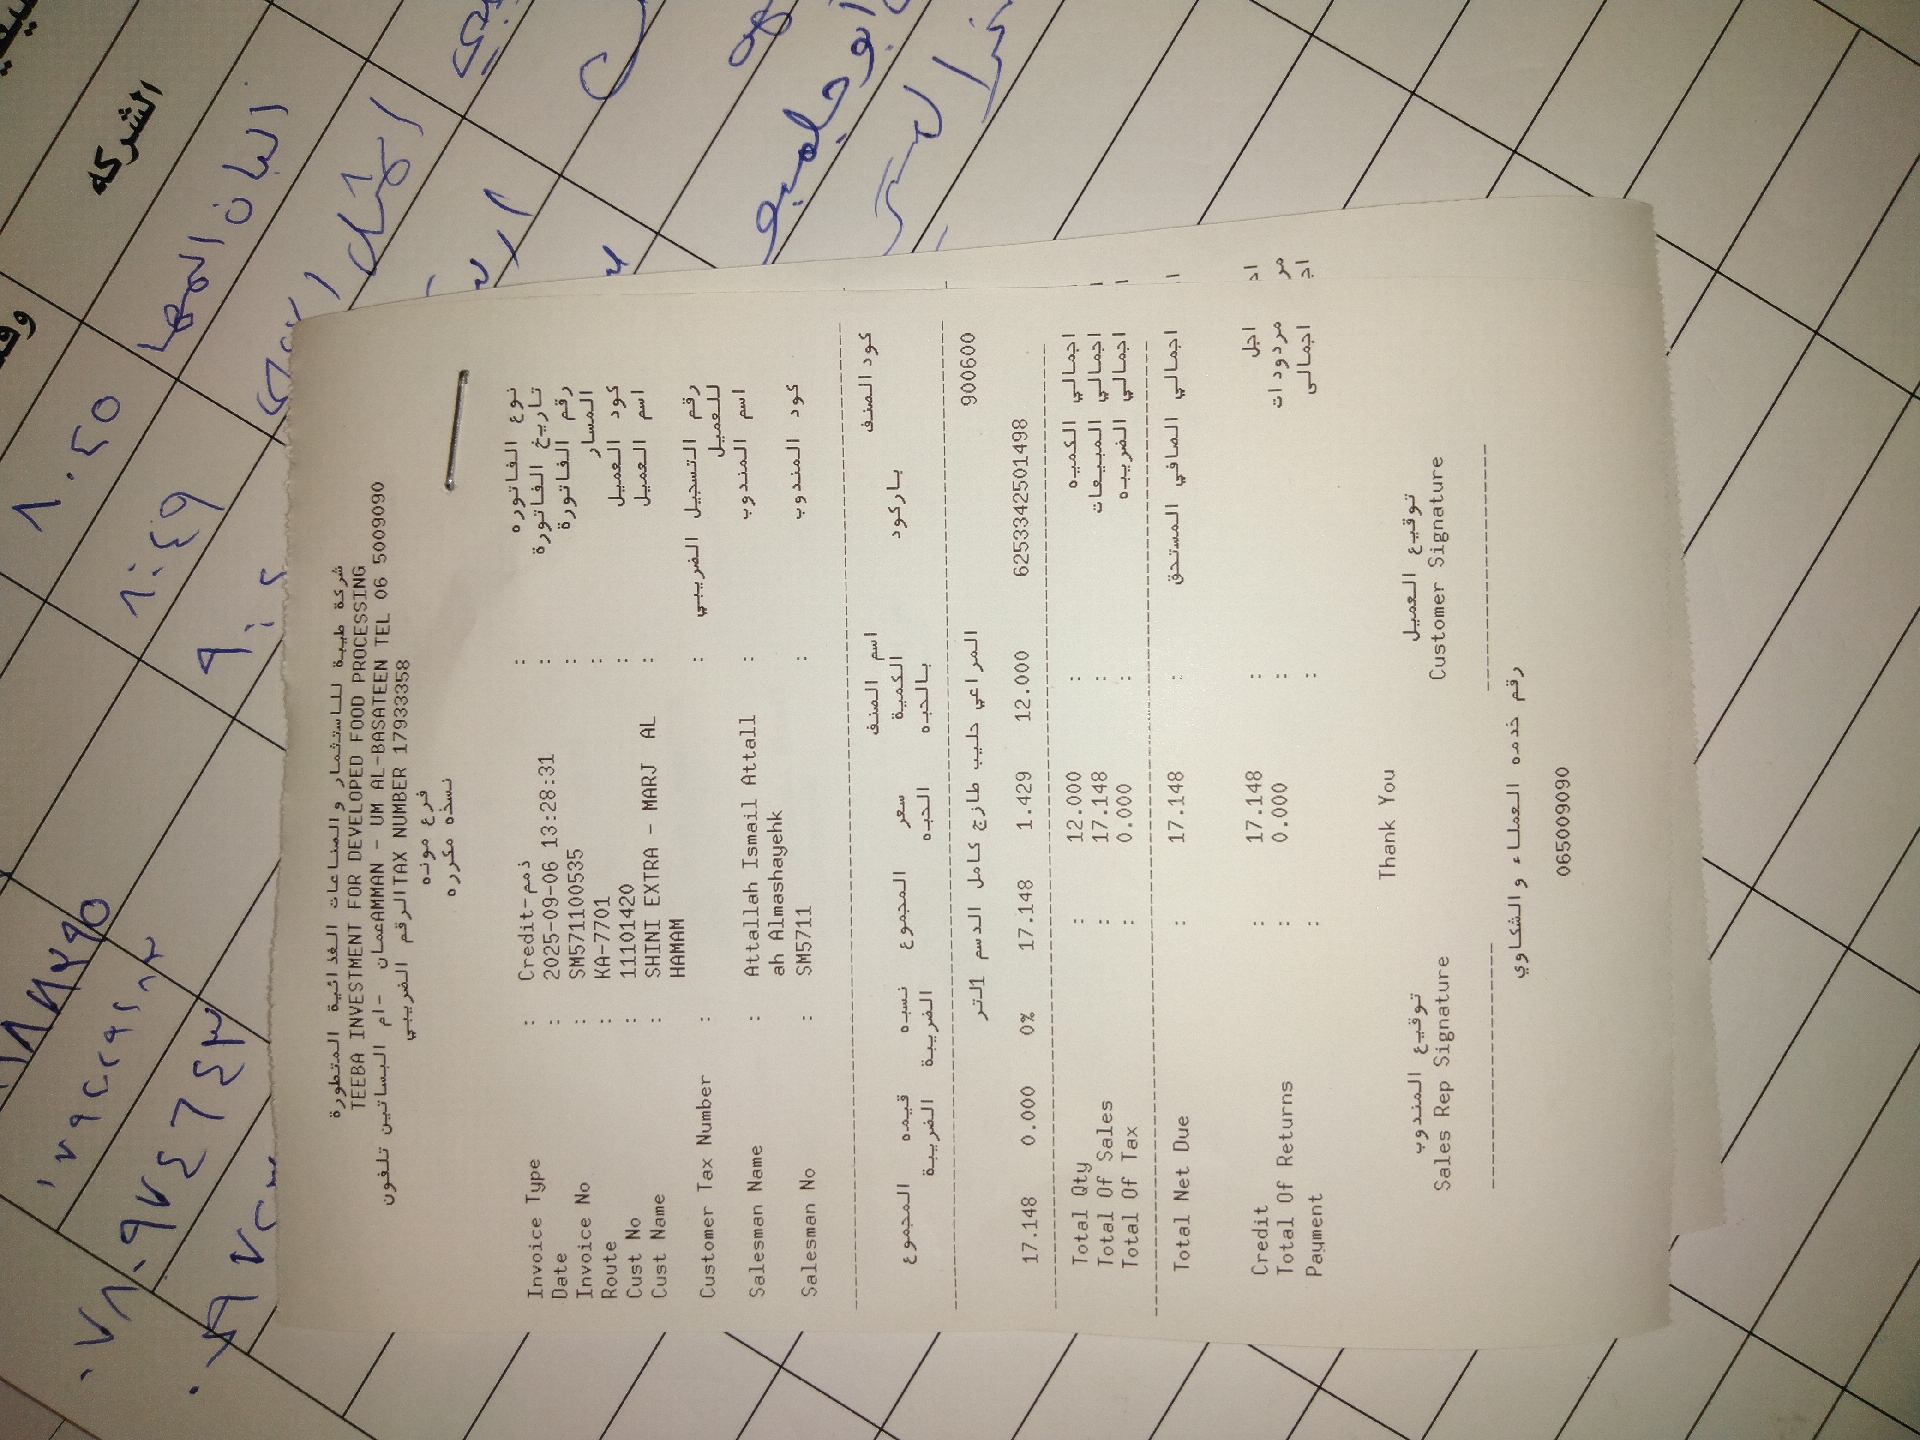 شركة طيبة للاستثمار والصناعات الغذائية المتطورة
TEEBA INVESTMENT FOR DEVELOPED FOOD PROCESSING
عمانAMMAN - UM AL-BASATEEN TEL 06 5009090 -ام البساتين تلفون
الرقم الضريبيTAX NUMBER 17933358
فرع مونه
نسخه مكرره
Invoice Type : Credit-ذمم : نوع الفاتوره
Date : 2025-09-06 13:28:31 : تاريخ الفاتورة
Invoice No : SM571100535 : رقم الفاتورة
Route : KA-7701 : المسار
Cust No : 11101420 : كود العميل
Cust Name : SHINI EXTRA - MARJ AL : اسم العميل
HAMAM
Customer Tax Number : : رقم التسجيل الضريبي
للعميل
Salesman Name : Attallah Ismail Attall : اسم المندوب
ah Almashayehk
Salesman No : SM5711 : كود المندوب
كود الصنف باركود اسم الصنف
الكمية بالحبه سعر الحبه المجموع نسبه الضريبة قيمه الضريبة المجموع
900600 المراعي حليب طازج كامل الدسم 1لتر
17.148 0.000 0% 17.148 1.429 12.000 6253342501498
Total Qty : 12.000 : اجمالي الكميه
Total Of Sales : 17.148 : اجمالي المبيعات
Total Of Tax : 0.000 : اجمالي الضريبه
Total Net Due : 17.148 : اجمالي الصافي المستحق
Credit : 17.148 : اجل
Total Of Returns : 0.000 : مردودات
Payment : : اجمالى
Thank You
توقيع المندوب توقيع العميل
Sales Rep Signature Customer Signature
رقم خدمه العملاء والشكاوي
065009090
الشركه
البان المها
١٠:٤٩
ابو حلميه